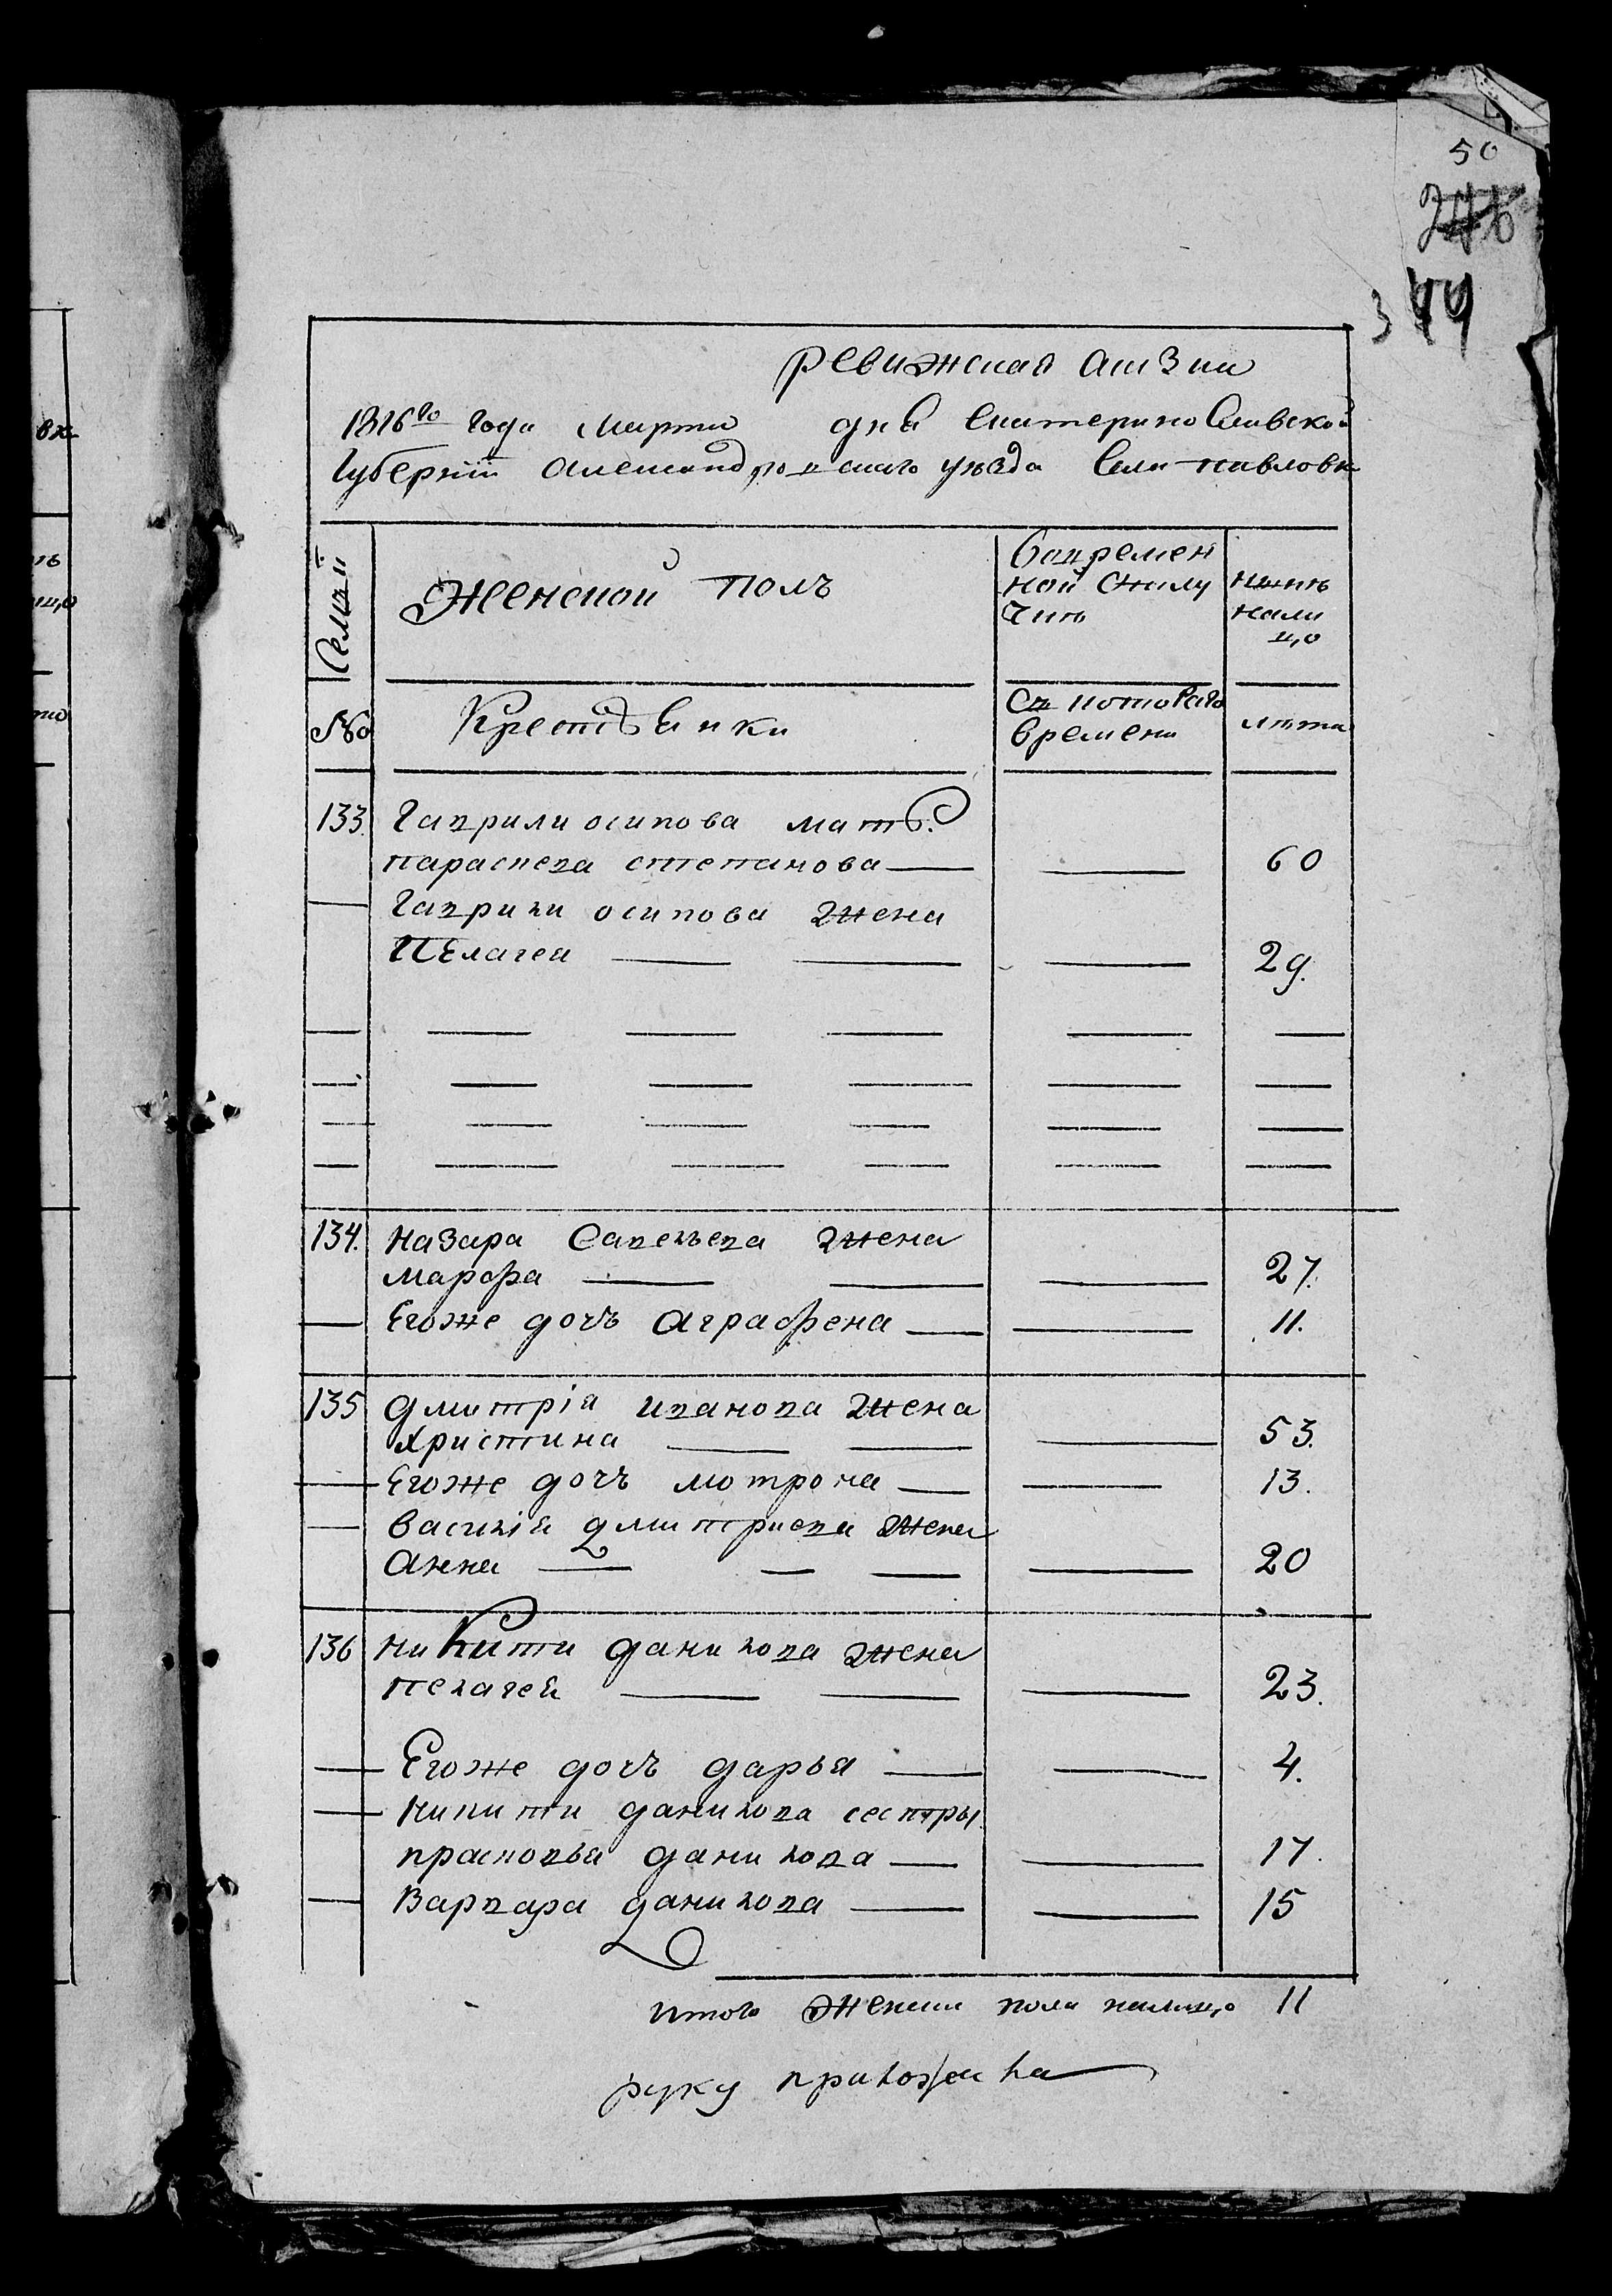 50
246
344
ревижская сказка
1816го года марта дня Екатеринославской
Губернiи Александровскаго уезда Села павловки
Семьи
Женской полъ
Вовремен
ной отлу
чкѣ
нынѣ
нали
цо
№
Крестьянки
Съ котораго
времени
лѣта
133. Гаврилы осипова мать
параскева степанова 60
Гаврилы осипова жена
Пелагея 29.
134. назара Савельева жена
марфа 27.
Егоже дочъ аграфена 11.
135 дмитрiя иванова жена
христина 53.
Егоже дочъ мотрона 13.
василiя дмитриева жена
анна 20
136 никиты данилова жена
пелагея 23.
Егоже дочъ дарья 4.
никиты данилова сестры
прасковья данилова 17.
варвара данилова 15
итого женска пола налицо 11
руку приложила